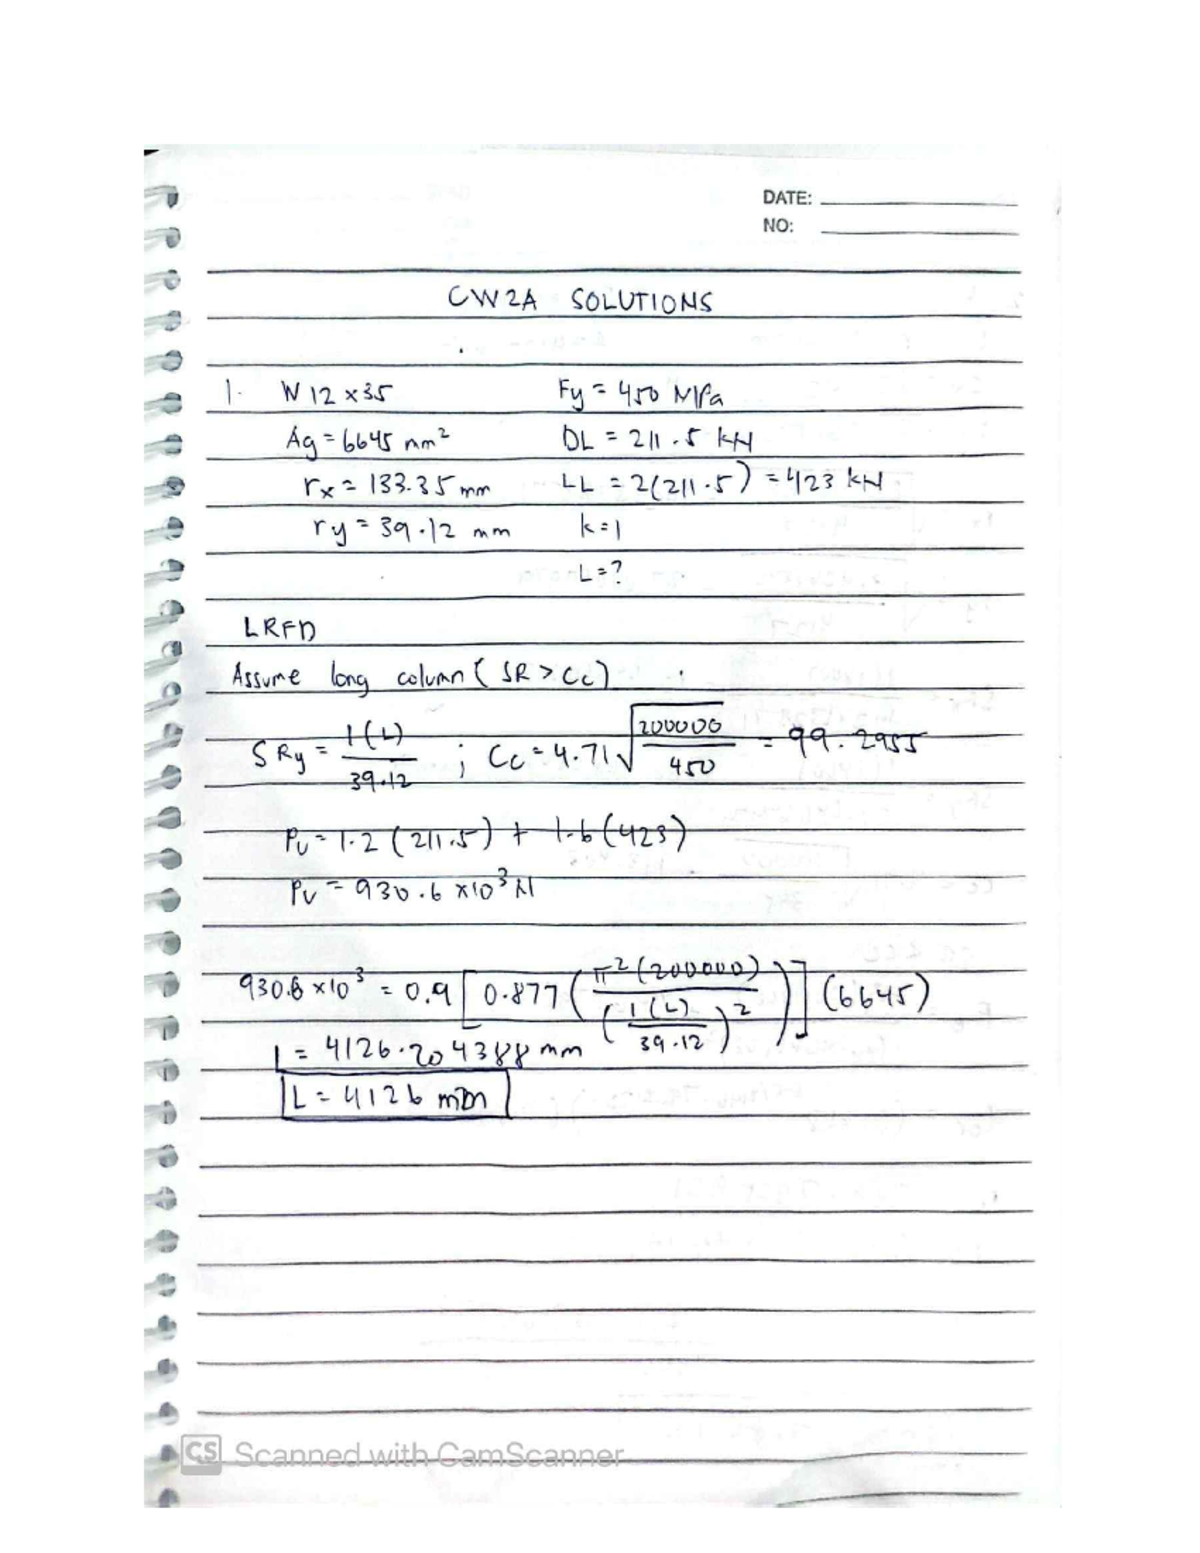 DATE:
NO:
CW2A SOLUTIONS
1. W 12 x 35 Fy = 450 MPa
Ag = 6645 mm² DL = 211.5 kN
rx = 133.35 mm LL = 2(211.5) = 423 kN
ry = 39.12 mm k = 1
L = ?
LRFD
Assume long column (SR > Cc)
SRy = 1(L)/39.12 ; Cc = 4.71√(200000/450) = 99.2955
Pu = 1.2 (211.5) + 1.6 (423)
Pu = 930.6 x10³ N
930.6 x10³ = 0.9 [0.877 (π² (200000) / (1(L)/39.12)²)] (6645)
L = 4126.204388 mm
L = 4126 mm
CS Scanned with CamScanner